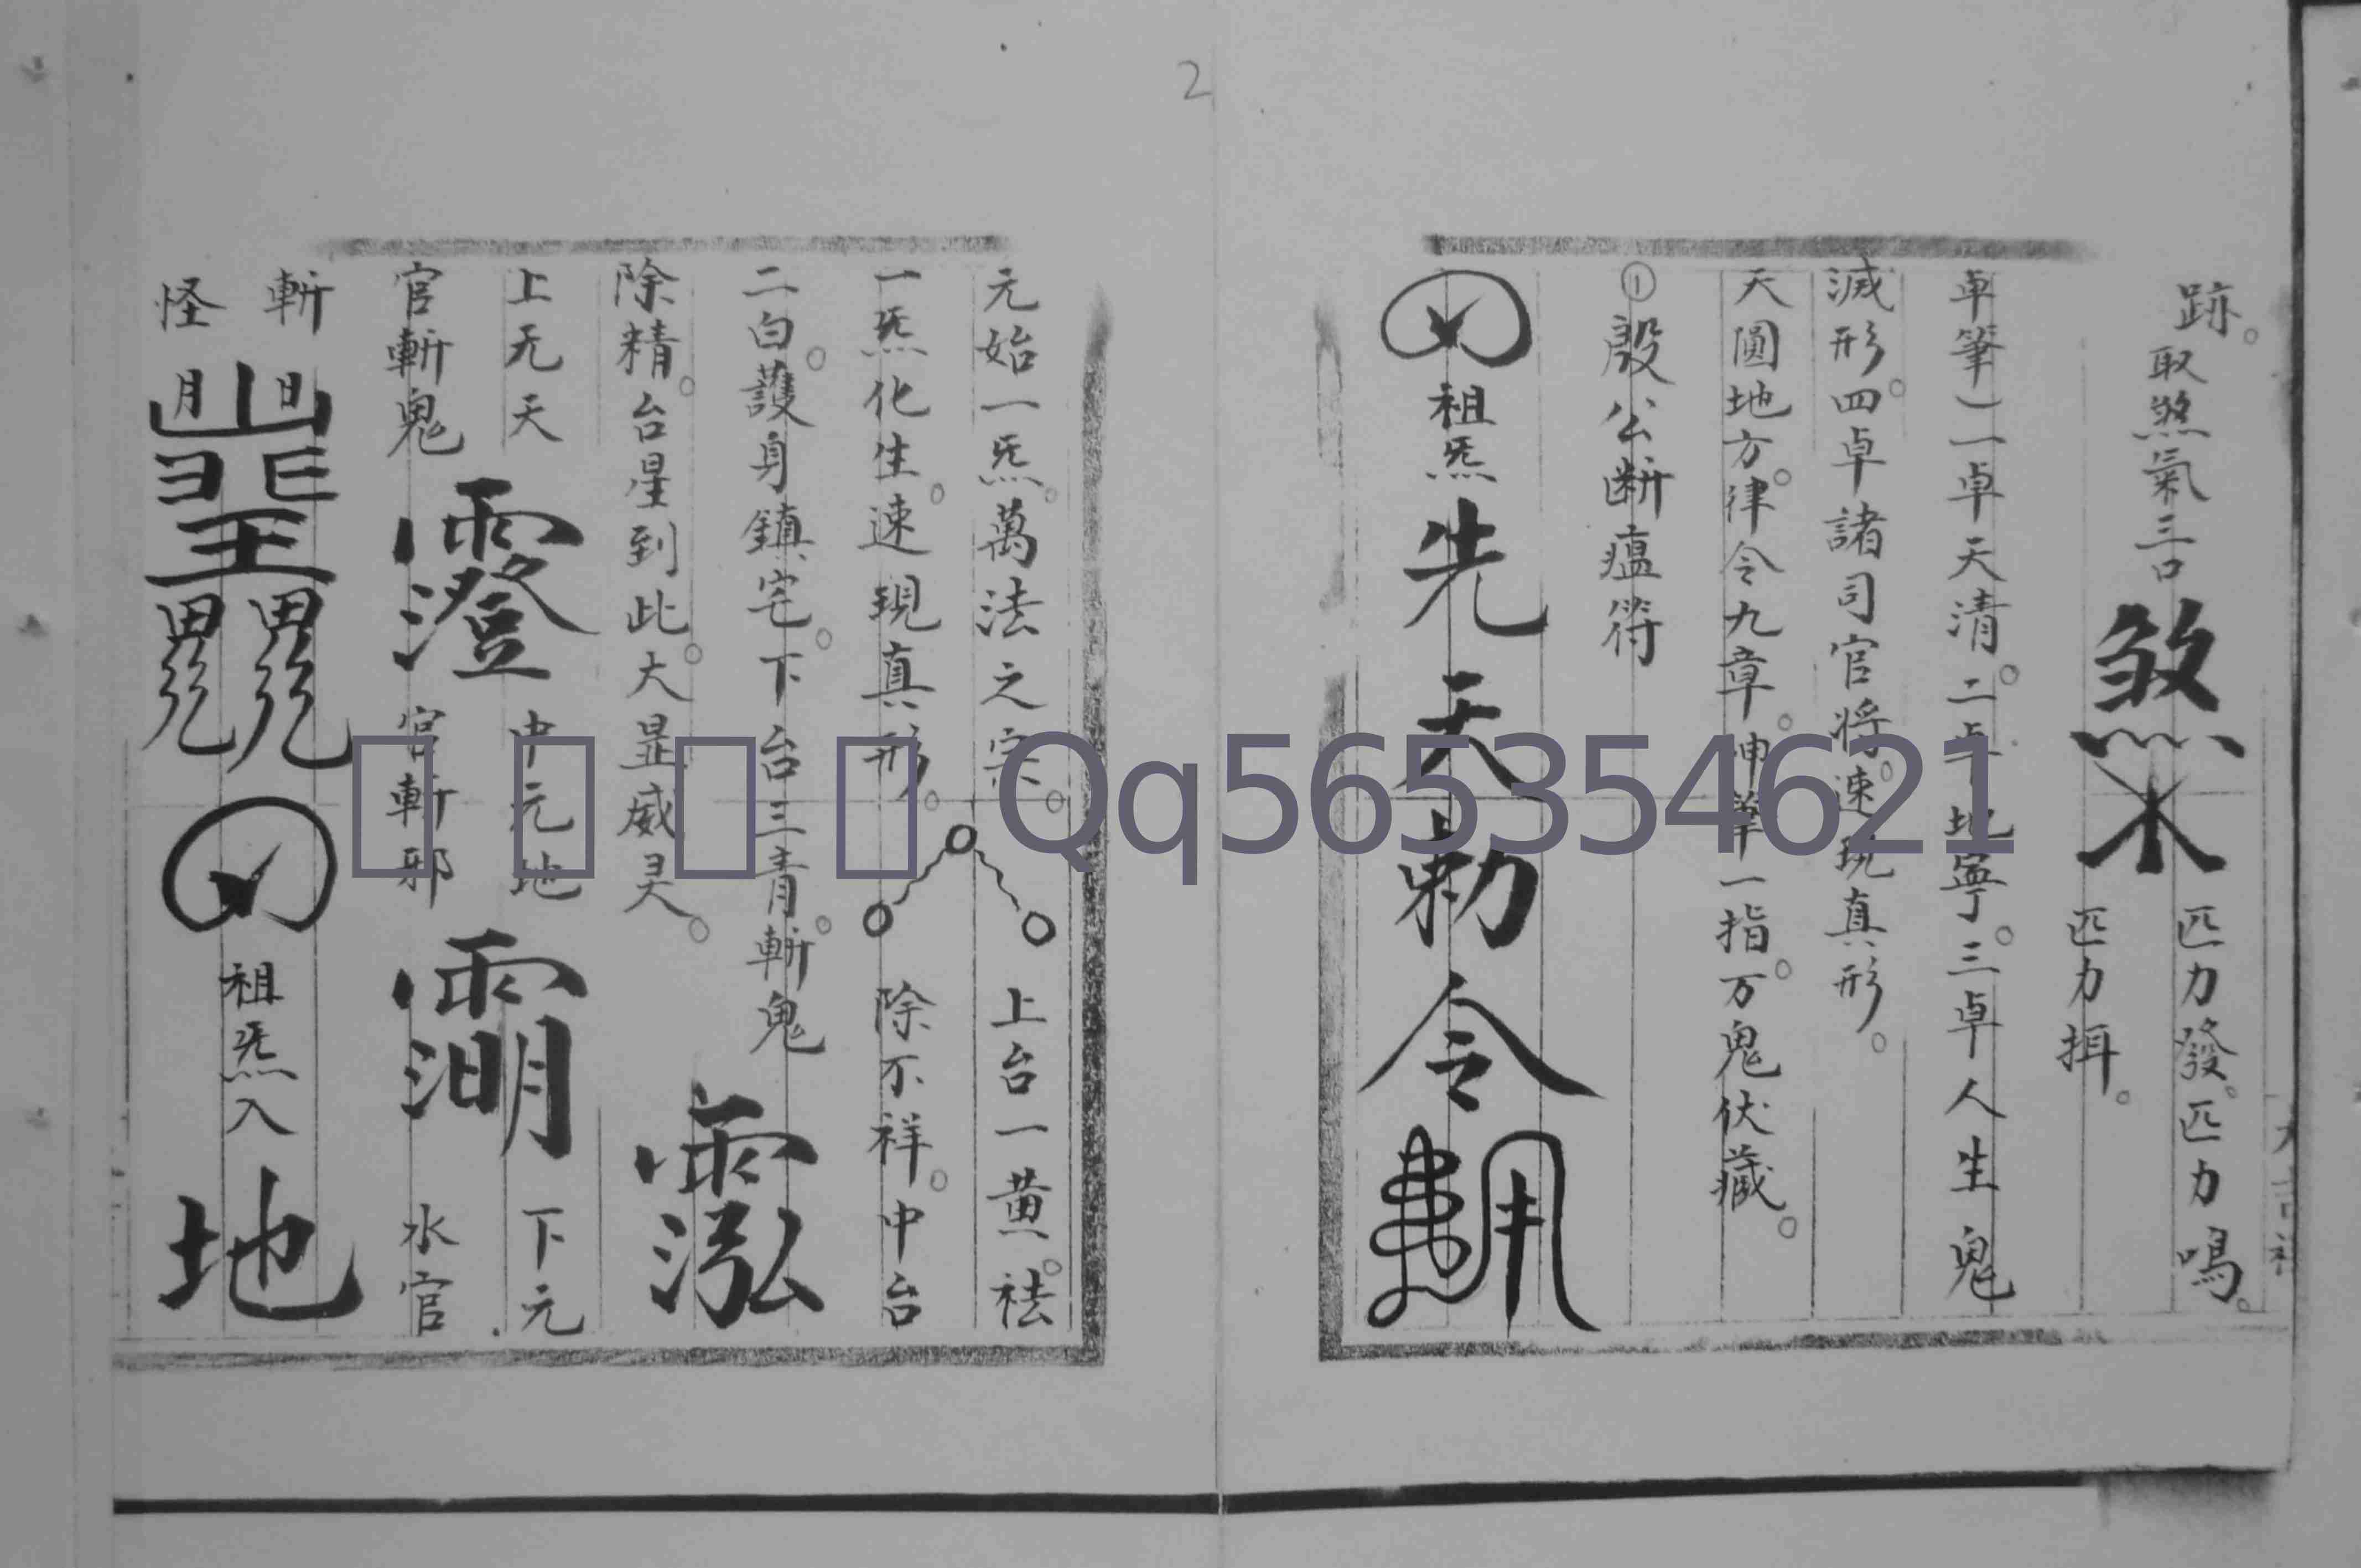 2
跡。
取煞氣三口
煞
匹力發。匹力鳴。
匹力揖。
卓筆)一卓天清。二卓地寧。三卓人生鬼
滅形。四卓諸司官将。速現真形。
天圓地方。律令九章。神筆一指。万鬼伏藏。
① 殷公断瘟符
祖炁
先天勅令
元始一炁。萬法之宗。
一炁化生。速現真形。
上台一黄。祛
除不祥。中台
二白。護身鎮宅。下台三青。斬鬼
除精。台星到此。大显威灵。
上元天
官斬鬼
中元地
官斬邪
下元
水官
斬
怪
祖炁入
地
Qq565354621